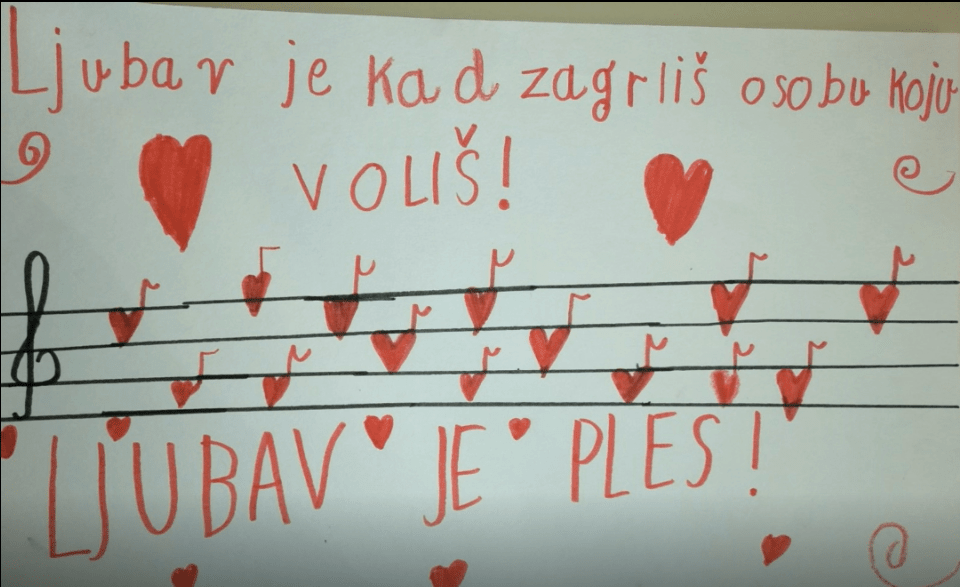 Ljubav je kad zagrliš osobu koju
VOLIŠ!
LJUBAV JE PLES!